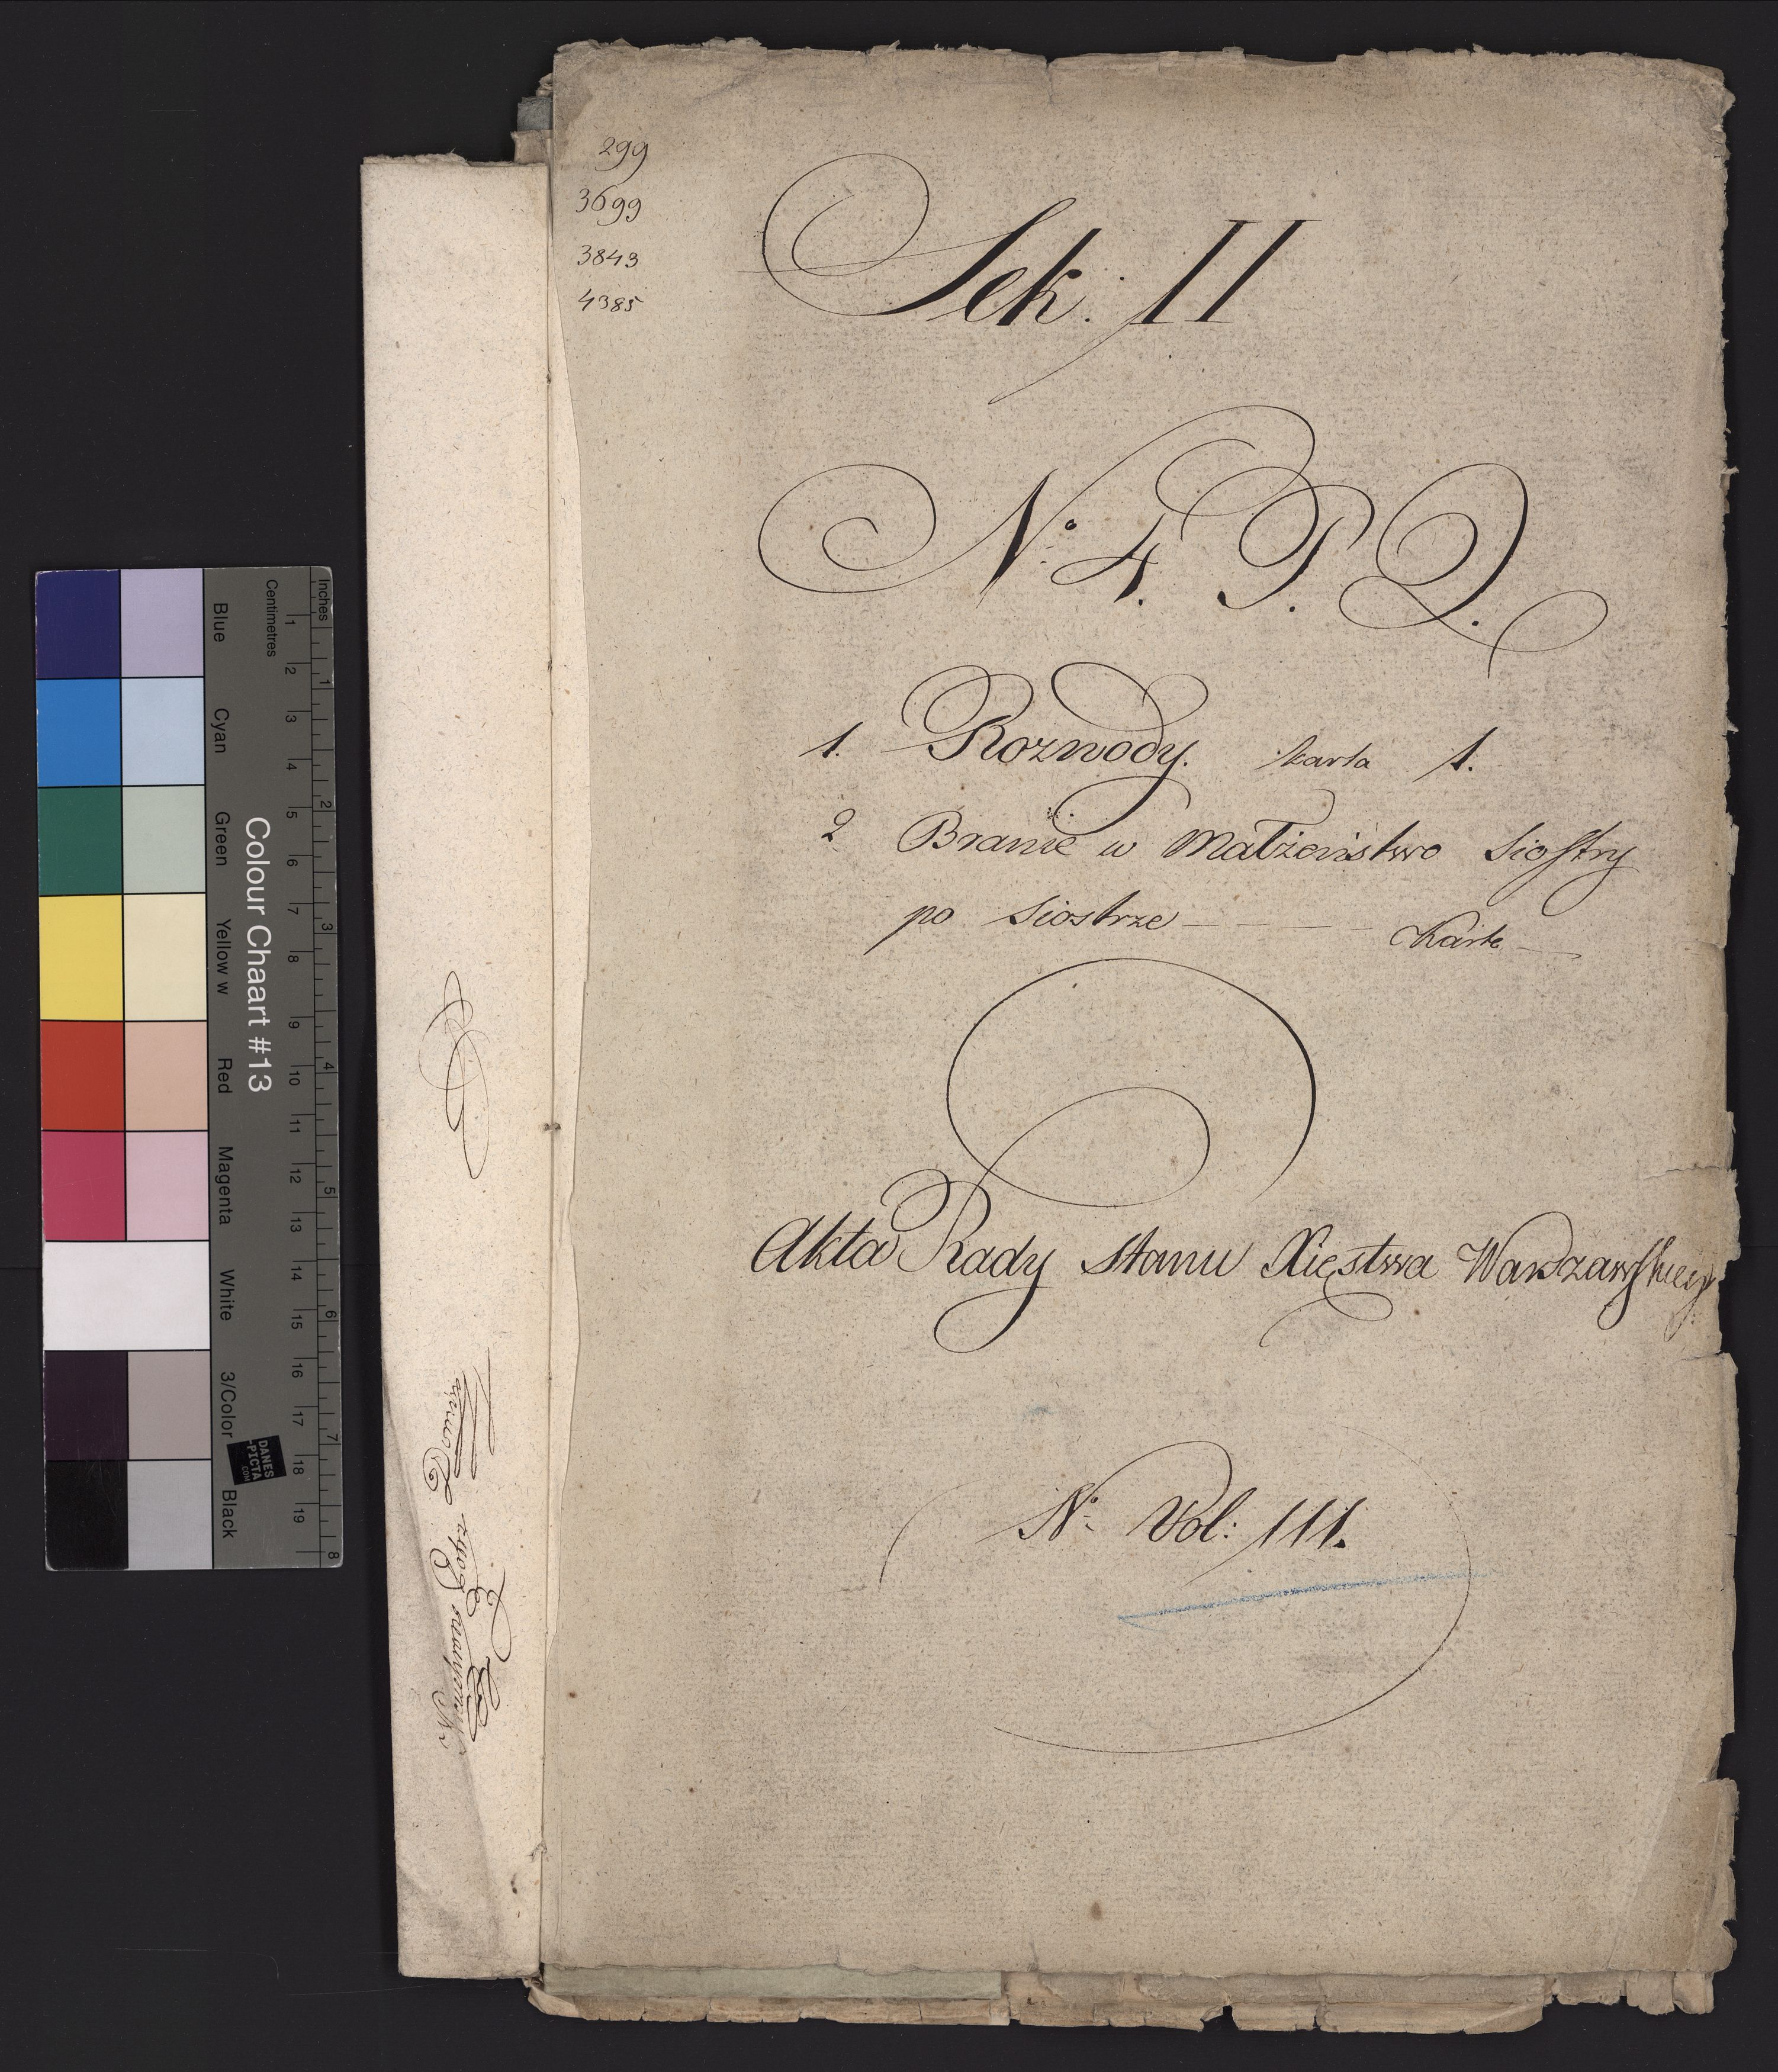 299
3699
3843
4385
Sek: II
No 4. P. Q.
1. Rozwody. karta 1.
2 Branie w Małżeństwo Siostry
po Siostrze - - - - Karta
Akta Rady Stanu Xięstwa Warszawskiego
No Vol: 111.
Colour Chaart #13
Inches
Centimetres
1 2 3 4 5 6 7 8
1 2 3 4 5 6 7 8 9 10 11 12 13 14 15 16 17 18 19
Blue
Cyan
Green
Yellow w
Red
Magenta
White
3/Color
Black
DANES
-PICTA
.COM